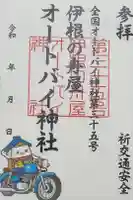 参拝
祈交通安全
全国オートバイ神社第三十五号
伊根の舟屋
オートバイ神社
令和 年 月 日